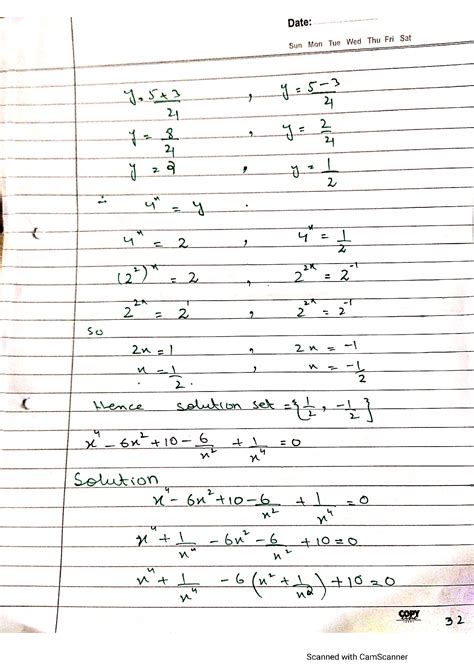 Date:
Sun Mon Tue Wed Thu Fri Sat
y = 5+3/4 , y = 5-3/4
y = 8/4 , y = 2/4
y = 2 , y = 1/2
∴ 4^x = y .
4^x = 2 , 4^x = 1/2
(2^2)^x = 2 , 2^2x = 2^-1
2^2x = 2^1 , 2^2x = 2^-1
so
2x = 1 , 2x = -1
x = 1/2 . , x = -1/2
Hence solution set = {1/2, -1/2}
x^4 - 6x^2 + 10 - 6/x^2 + 1/x^4 = 0
Solution
x^4 - 6x^2 + 10 - 6/x^2 + 1/x^4 = 0
x^4 + 1/x^4 - 6x^2 - 6/x^2 + 10 = 0
x^4 + 1/x^4 - 6(x^2 + 1/x^2) + 10 = 0
COPY
32
Scanned with CamScanner